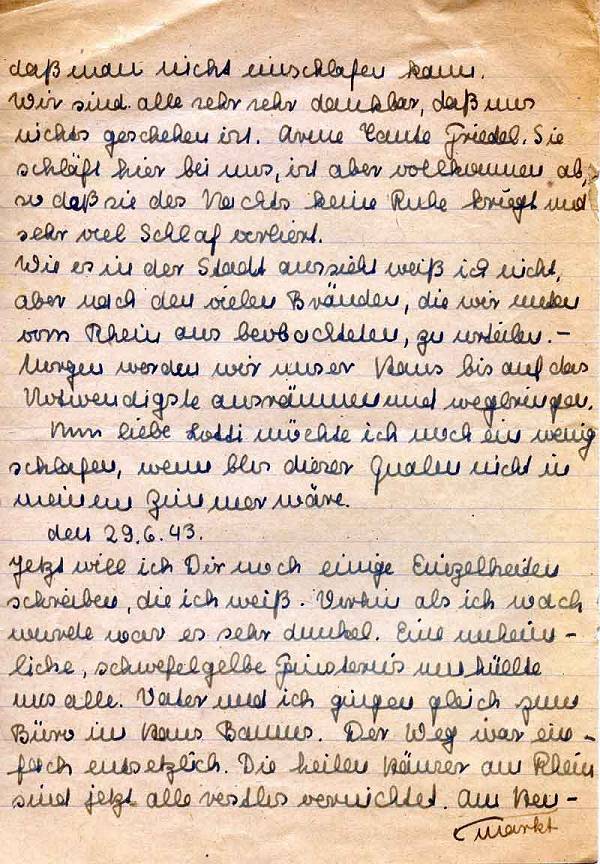 daß man nicht einschlafen kann.
Wir sind alle sehr sehr dankbar, daß uns
nichts geschehen ist. Arme Tante Friedel. Sie
schläft hier bei uns, ist aber vollkommen ab,
so daß sie des Nachts keine Ruhe kriegt und
sehr viel Schlaf verliert.
Wie es in der Stadt aussieht weiß ich nicht,
aber nach den vielen Bränden, die wir unten
vom Rhein aus beobachteten, zu urteilen. –
Morgen werden wir unser Haus bis auf das
Notwendigste ausräumen und wegbringen.
Nun liebe Lotti möchte ich noch ein wenig
schlafen, wenn blos dieser Qualm nicht in
meinem Zimmer wäre.
den 29.6.43.
Jetzt will ich Dir noch einige Einzelheiten
schreiben, die ich weiß. Vorhin als ich wach
wurde war es sehr dunkel. Eine unheim-
liche, schwefelgelbe Finsternis umhüllte
uns alle. Vater und ich gingen gleich zum
Büro in Haus Baums. Der Weg war ein-
fach entsetzlich. Die heilen Häuser am Rhein
sind jetzt alle restlos vernichtet. Am Heu-
markt